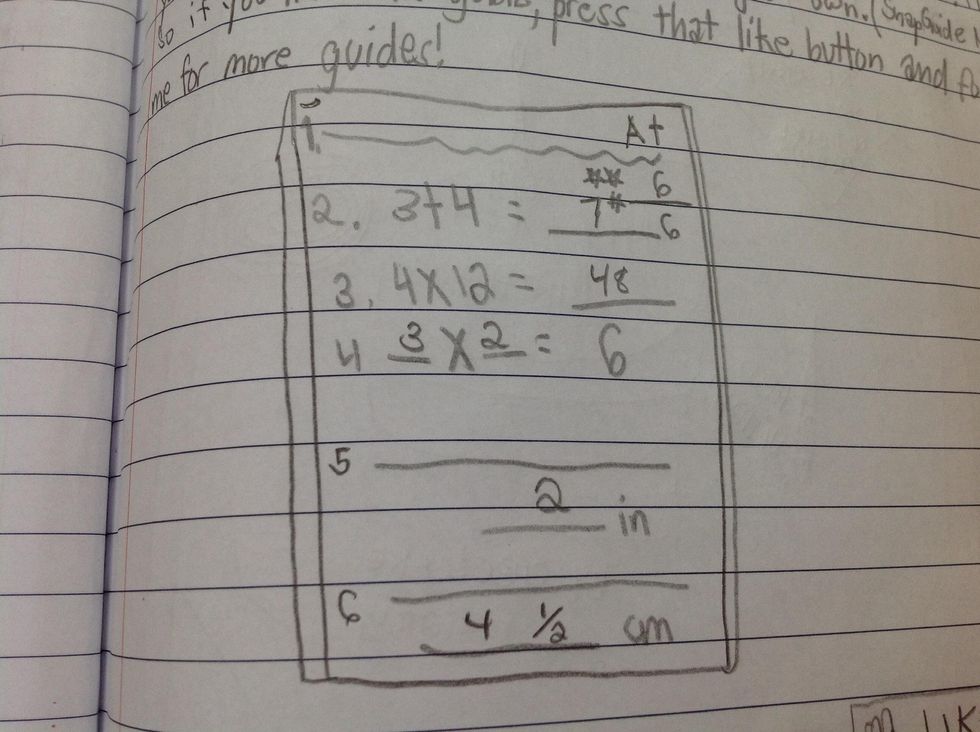 so if you press that like button and
own. (SnapGuide
me for more guides!
1. A+
** 6
2. 3+4 = 7# 6
3. 4x12 = 48
4 3 x 2 = 6
5
2 in
6
4 1/2 cm
LIK